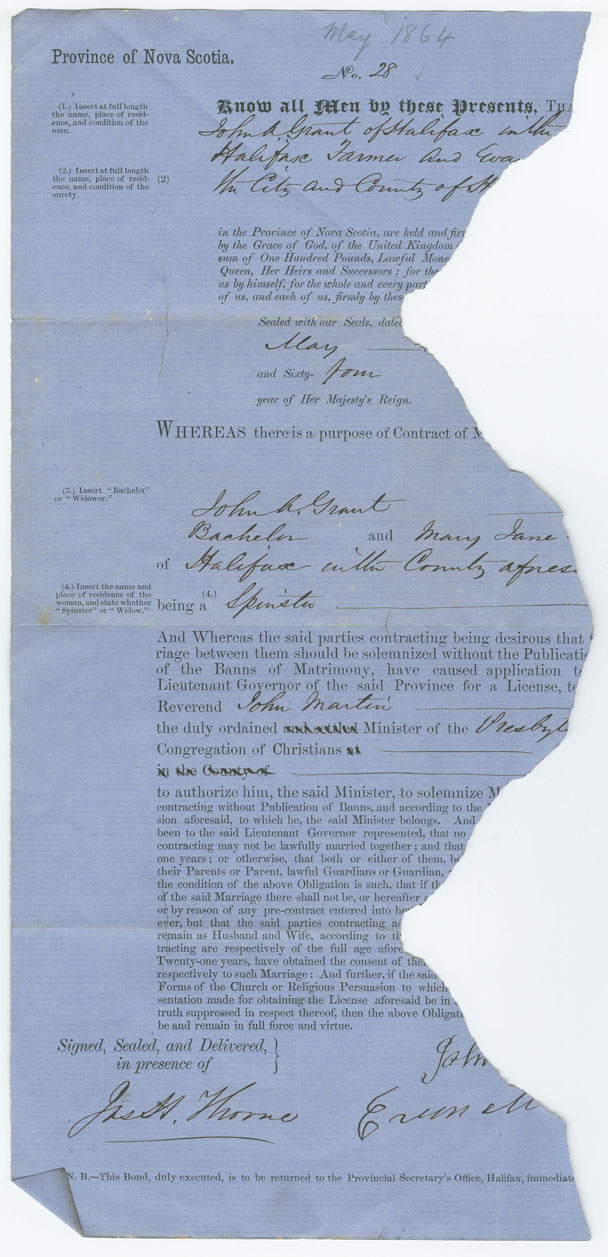 May 1864
Province of Nova Scotia.
No. 28
(1.) Insert at full length
the name, place of resid-
ence, and condition of the
man.
Know all Men by these Presents, THA
John A. Grant of Halifax in the
(2.) Insert at full length
the name, place of resid-
ence, and condition of the
surety.
(2)
Halifax Farmer and
the City and County of H
in the Province of Nova Scotia, are held and fir
by the Grace of God, of the United Kingdom
sum of One Hundred Pounds, Lawful Mone
Queen, Her Heirs and Successors; for the
us by himself, for the whole and every part
of us, and each of us, firmly by thes
Sealed with our Seals, dated
May
and Sixty- four
year of Her Majesty's Reign.
WHEREAS there is a purpose of Contract of M
(3.) Insert "Bachelor"
or "Widower."
John A. Grant
Bachelor and Mary Jane
of Halifax in the County afores
(4.) Insert the name and
place of residence of the
woman, and state whether
"Spinster" or "Widow."
being a (4.) Spinster
And Whereas the said parties contracting being desirous that t
riage between them should be solemnized without the Publicati
of the Banns of Matrimony, have caused application t
Lieutenant Governor of the said Province for a License, to
Reverend John Martin
the duly ordained and settled Minister of the Presbyt
Congregation of Christians at
in the County of
to authorize him, the said Minister, to solemnize M
contracting without Publication of Banns, and according to the
sion aforesaid, to which he, the said Minister belongs. And
been to the said Lieutenant Governor represented, that no
contracting may not be lawfully married together; and that
one years; or otherwise, that both or either of them, b
their Parents or Parent, lawful Guardians or Guardian,
the condition of the above Obligation is such, that if th
of the said Marriage there shall not be, or hereafter
or by reason of any pre-contract entered into be
ever, but that the said parties contracting a
remain as Husband and Wife, according to th
tracting are respectively of the full age afore
Twenty-one years, have obtained the consent of the
respectively to such Marriage: And further, if the said
Forms of the Church or Religious Persuasion to which
sentation made for obtaining the License aforesaid be in
truth suppressed in respect thereof, then the above Obligat
be and remain in full force and virtue.
Signed, Sealed, and Delivered,
in presence of
John
Jas H. Thorne
N. B.—This Bond, duly executed, is to be returned to the Provincial Secretary's Office, Halifax, immediate